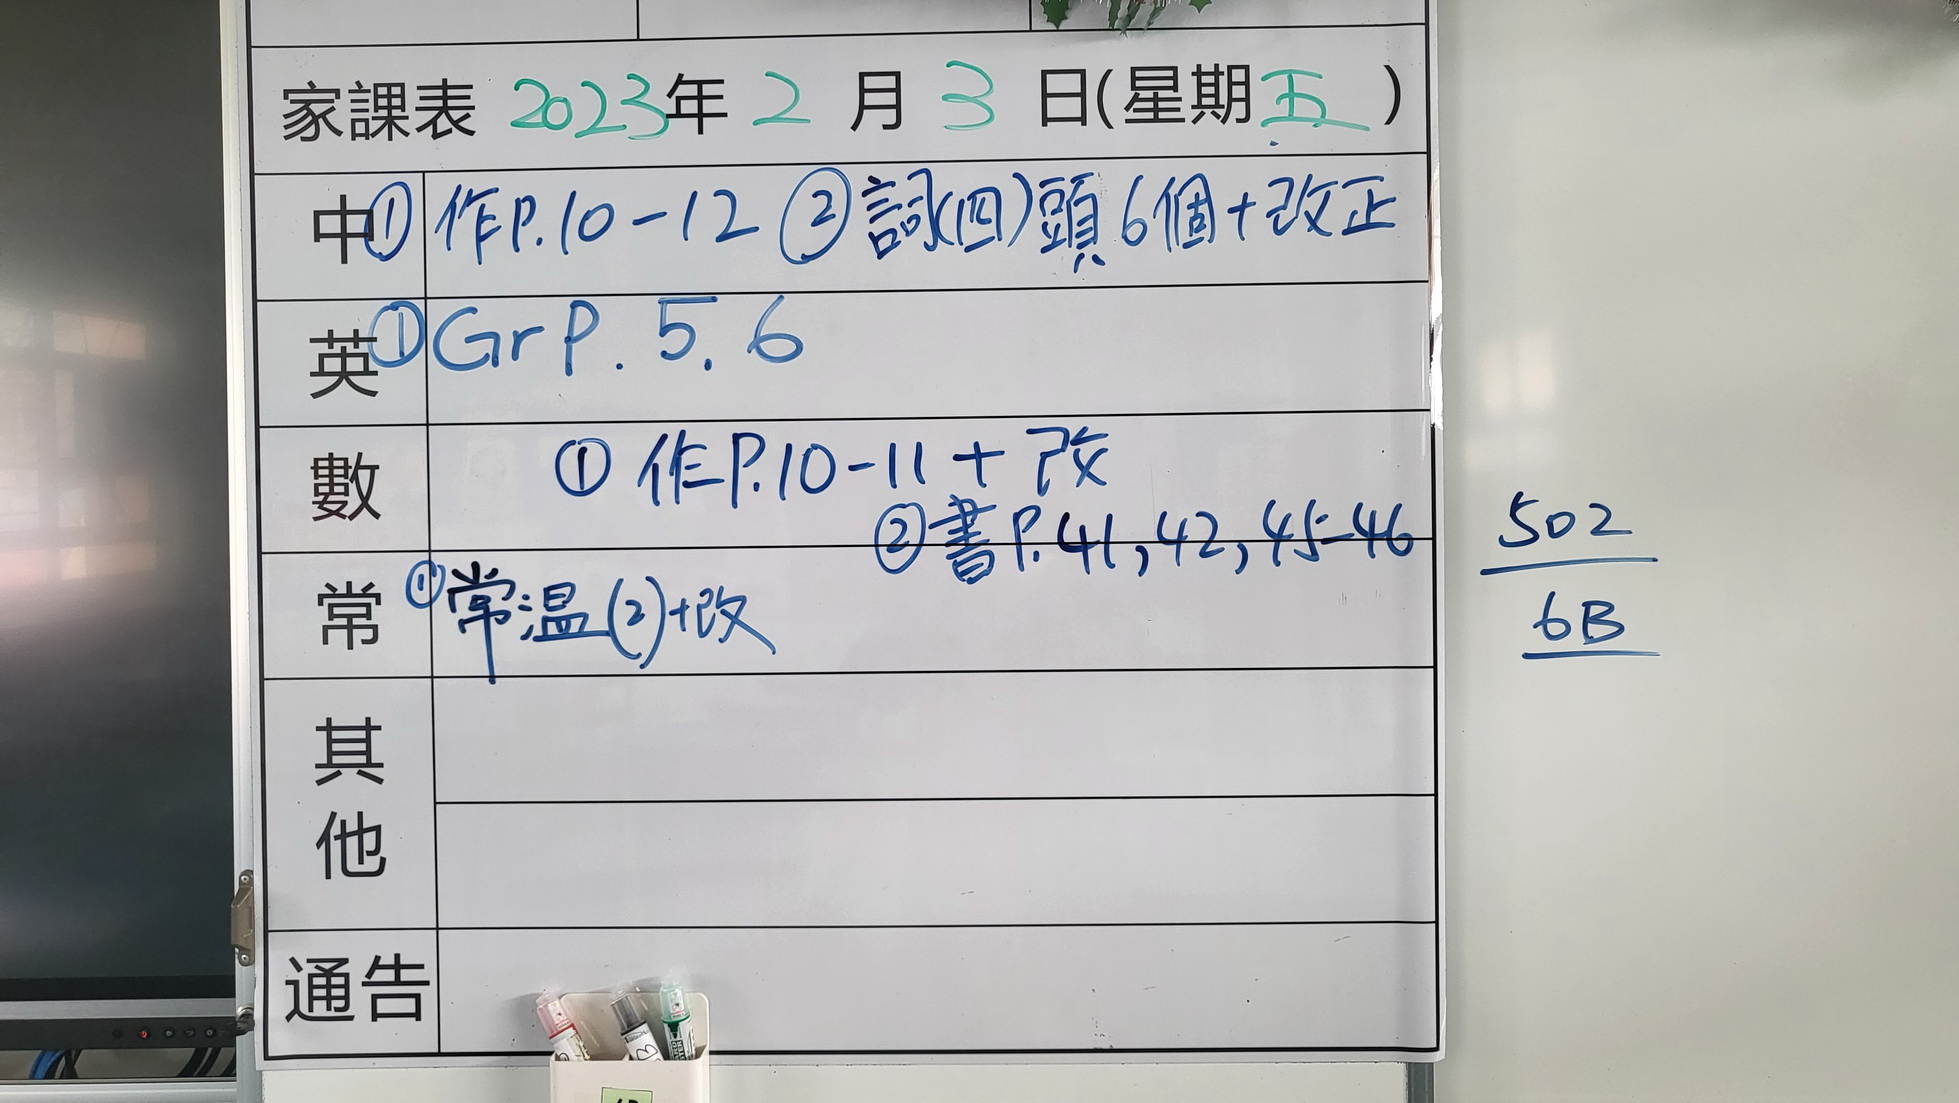 家課表 2023年 2 月 3 日(星期五)
中 ① 作P.10-12 ② 詞(四)頭6個+改正
英 ① Gr P. 5. 6
數 ① 作P.10-11 + 改
② 書P.41, 42, 45-46
常 ① 常温(2)+改
其他
通告
502
6B